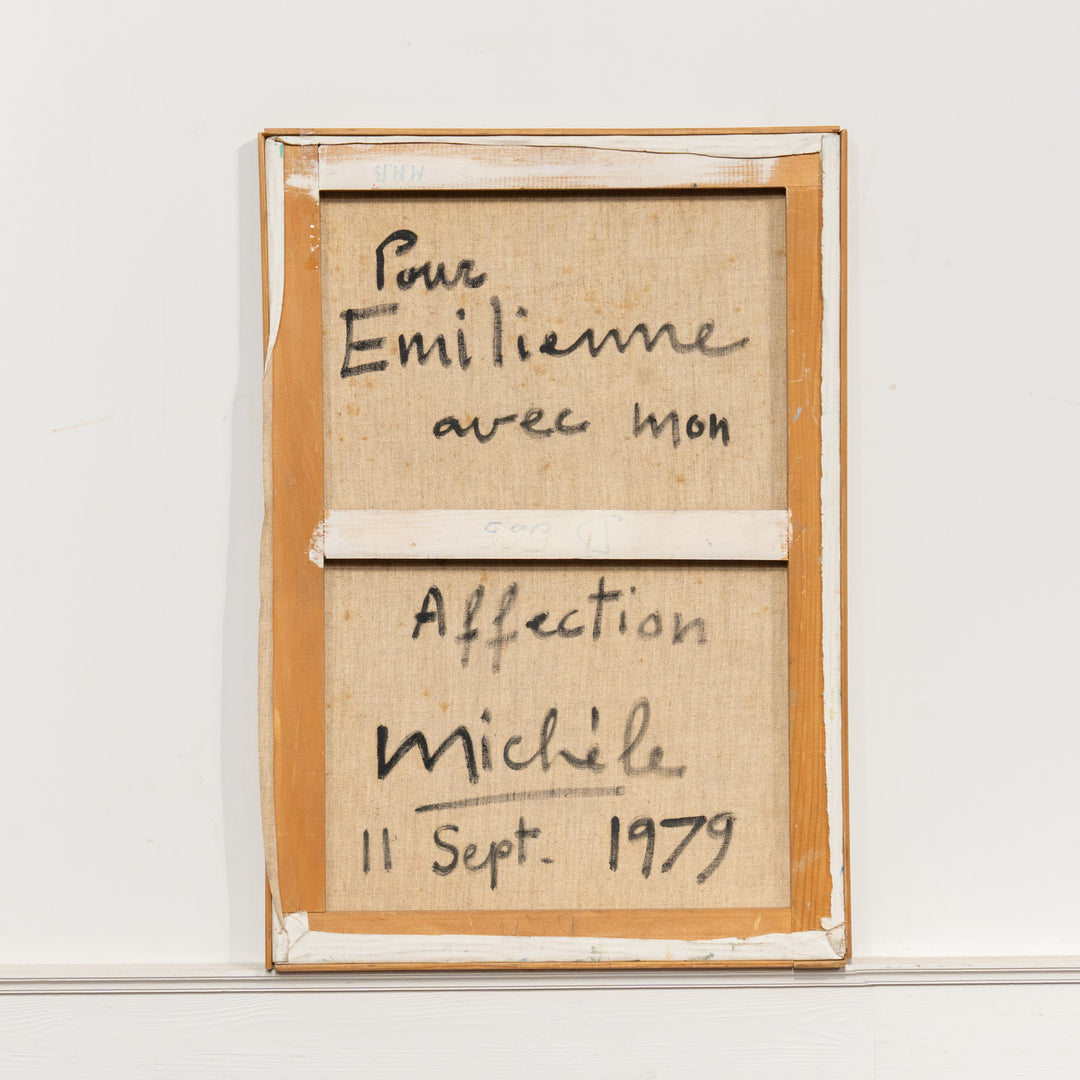 MMB
Pour
Emilienne
avec mon
Affection
Michèle
11 Sept. 1979